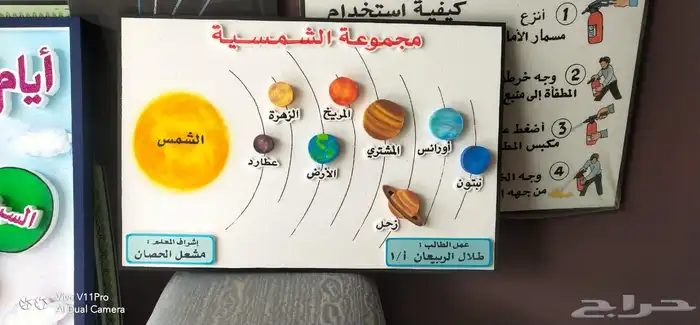 مجموعة الشمسية
الشمس
عطارد
الزهرة
الأرض
المريخ
المشتري
زحل
أورانس
نبتون
إشراف المعلم :
مشعل الحصان
عمل الطالب :
طلال الربيعان أ/١
أيام
كيفية استخدام
١ أنزع
مسمار الأما
٢ وجه خرط
المطفأة إلى منبع
٣ أضغط ع
مكبس المط
٤ وجه الخ
من جهة ا
Vivo V11Pro
AI Dual Camera
حراج